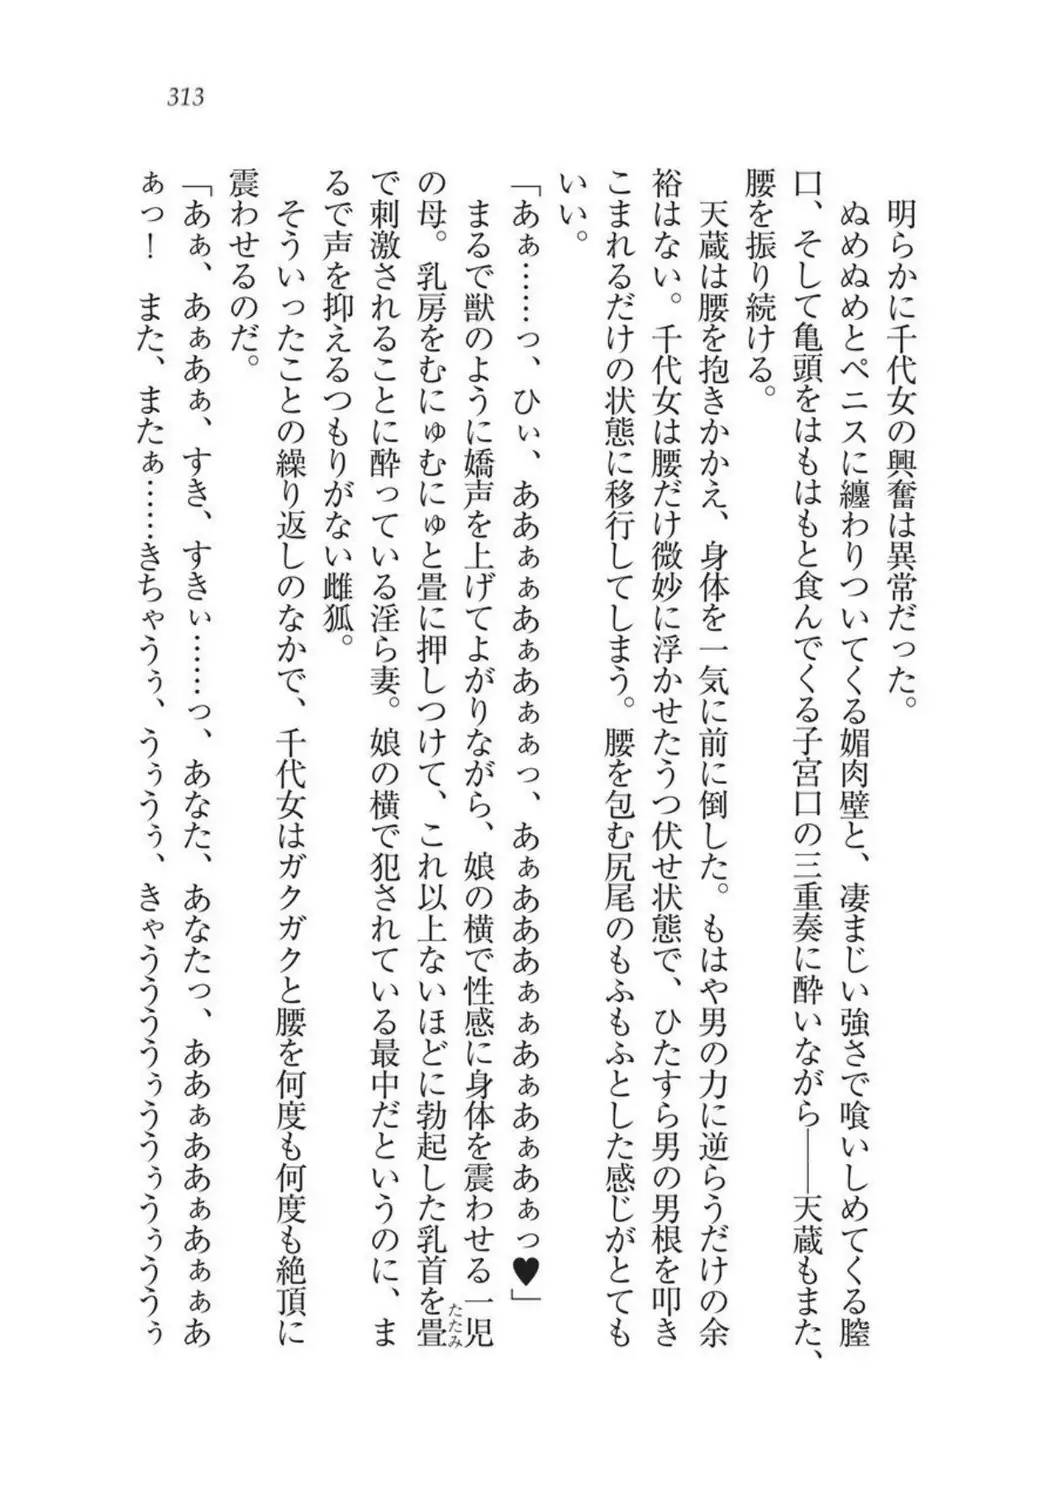 313
明らかに千代女の興奮は異常だった。
ぬめぬめとペニスに纏わりついてくる媚肉壁と、凄まじい強さで喰いしめてくる膣
口、そして亀頭をはもはもと食んでくる子宮口の三重奏に酔いながら――天蔵もまた、
腰を振り続ける。
天蔵は腰を抱きかかえ、身体を一気に前に倒した。もはや男の力に逆らうだけの余
裕はない。千代女は腰だけ微妙に浮かせたうつ伏せ状態で、ひたすら男の男根を叩き
こまれるだけの状態に移行してしまう。腰を包む尻尾のもふもふとした感じがとても
いい。
「あぁ……っ、ひぃ、ああぁぁあぁあぁぁっ、あぁあああぁぁあぁあぁあぁっ♥」
まるで獣のように嬌声を上げてよがりながら、娘の横で性感に身体を震わせる一児
の母。乳房をむにゅむにゅと畳に押しつけて、これ以上ないほどに勃起した乳首を畳
たたみ
で刺激されることに酔っている淫ら妻。娘の横で犯されている最中だというのに、ま
るで声を抑えるつもりがない雌狐。
そういったことの繰り返しのなかで、千代女はガクガクと腰を何度も何度も絶頂に
震わせるのだ。
「あぁ、あぁあぁ、すき、すきぃ……っ、あなた、あなたっ、ああぁああぁあぁぁあ
ぁっ！　また、またぁ……きちゃうぅ、うぅうぅ、きゃうううぅううぅうぅううぅ